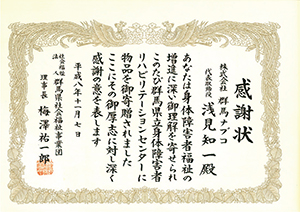 感謝状
株式会社 群馬ナブコ
代表取締役 浅見知一殿
あなたは身体障害者福祉の
増進に深い御理解を寄せられ
このたび群馬県立身体障害者
リハビリテーションセンターに
物品を御寄贈されました
ここにその御厚志に対し深く
感謝の意を表します
平成八年十一月七日
社会福祉法人 群馬県社会福祉事業団
理事長 梅澤祐一郎